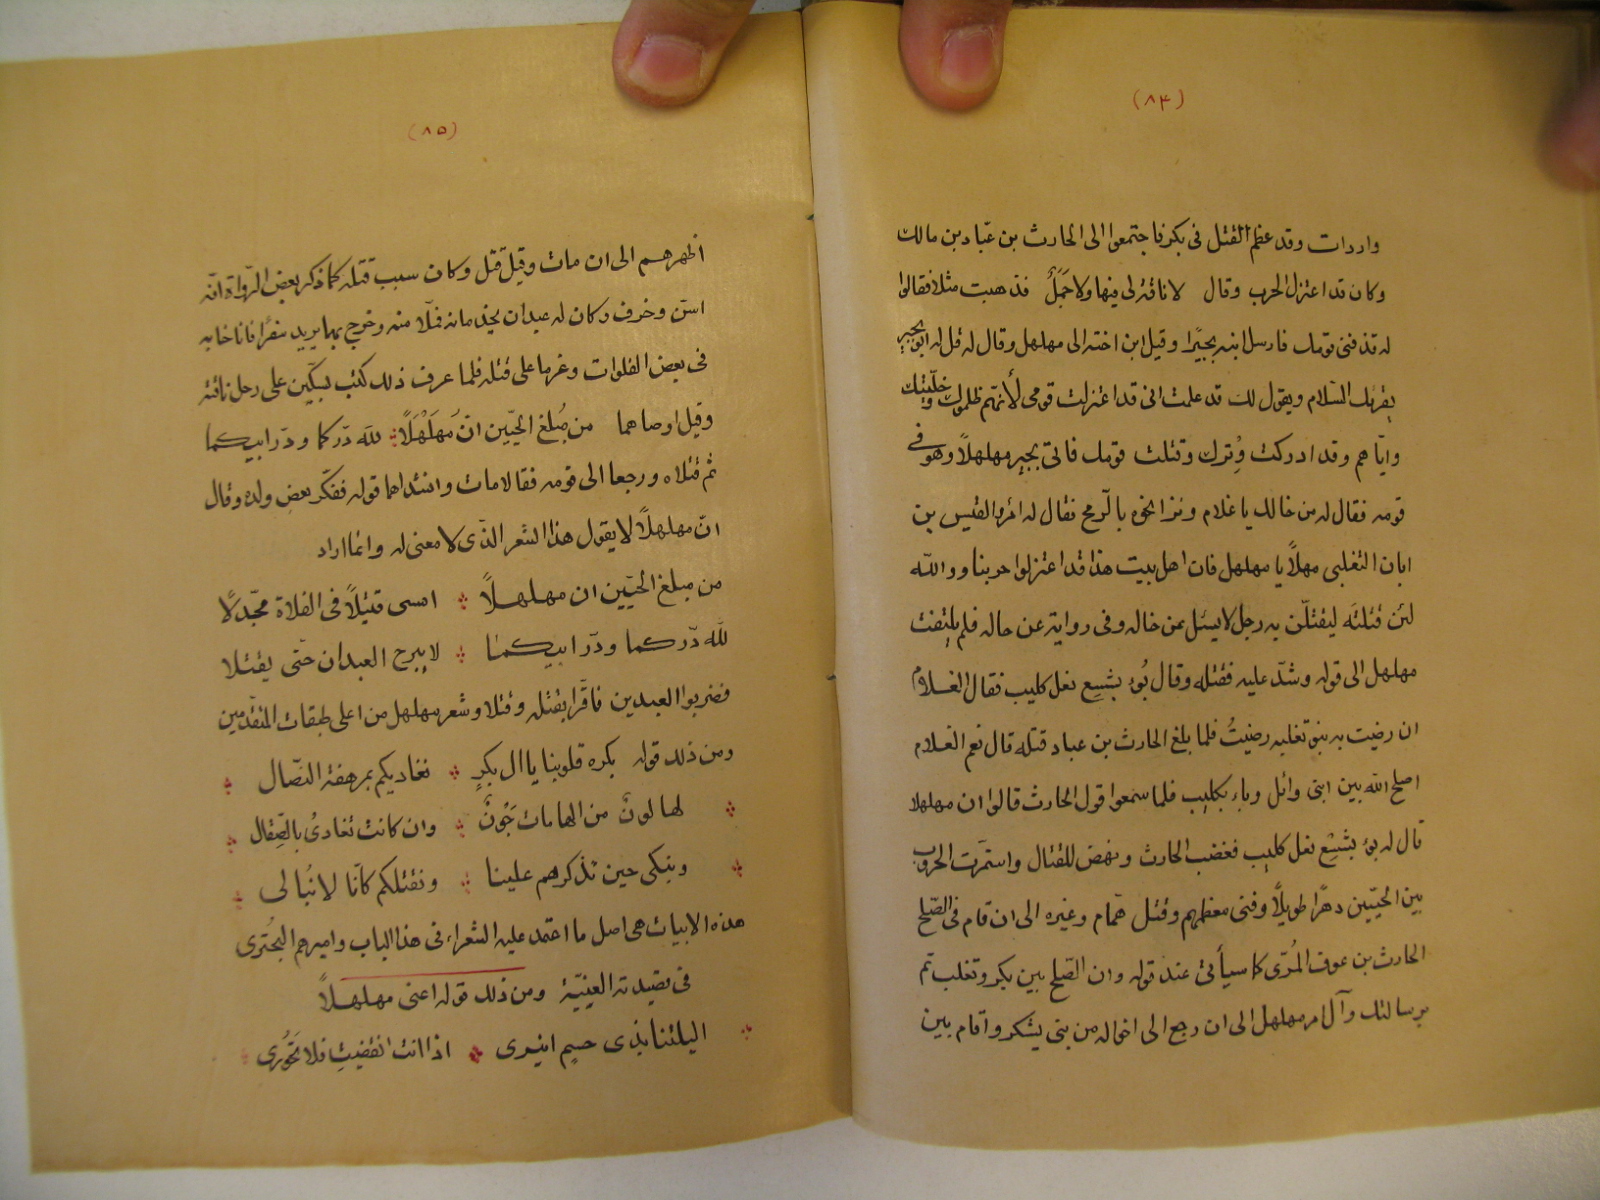 (٨۴)
واردات وقد عظم القتل فى بكر فاجتمعوا الى الحارث بن عبّاد بن مالك
وكان قد اعتزل الحرب وقال لا ناقة لى فيها ولا جَمَلٌ فذهبت مثلا فقالوا
له قد فنى قومك فارسل ابنه بجيرًا وقيل ابن اخته الى مهلهل وقال له قل له ابو بجير
يقرئك السّلام ويقول لك قد علمت انى قد اعتزلت قومى لأنّهم ظلموك وخلّيتك
وايّاهم وقد ادركت وِترك وقتلت قومك فاتى بجير مهلهلاً وهو فى
قومه فقال له من خالك يا غلام ونزا نحوه بالرّمح فقال له امرؤ القيس بن
ابان التغلبى مهلاً يا مهلهل فان اهل بيت هذا قد اعتزلوا حربنا ووالله
لئن قتلته ليقتلّن به رجل لا يسئل عن خاله وفى رواية عن حاله فلم يلتفت
مهلهل الى قوله وشدّ عليه فقتله وقال بُؤ بشسع نعل كليب فقال الغلام
ان رضيت به بنو تغلبه رضيتُ فلما بلغ الحارث بن عباد قتله قال نعم الغلام
اصلح الله بين ابنى وائل وباء بكليب فلما سمعوا قول الحارث قالوا ان مهلهلا
قال له بؤ بشسْع نعل كليب فغضب الحارث ونهض للقتال واستمرّت الحروب
بين الحيّين دهرًا طويلاً وفنى معظمهم وقتل همّام وغيره الى ان قام فى الصّلح
الحارث بن عوف المُرّى كما سيأتى عند قوله وان الصّلح بين بكر وتغلب تم
برسالتك وآل امر مهلهل الى ان رجع الى اخواله من بنى يشكر واقام بين
(٨۵)
اظهرهم الى ان مات وقيل قتل وكان سبب قتله كما ذكر بعض الرّواة انّه
اسنّ وخرف وكان له عبدان يخدمانه فملّا منه وخرج بهما يريد سفرًا فاناخا به
فى بعض الفلوات وعزما على قتله فلما عرف ذلك كتب بسكّين على رحل ناقته
وقيل اوصاهما من مُبلغ الحيّين انّ مُهَلْهَلًا لله درّكما ودرّ ابيكما
ثم قتلاه ورجعا الى قومه فقالا مات وانشداهما قوله ففكّر بعض ولده وقال
انّ مهلهلاً لا يقول هذا الشعر الذّى لا معنى له وانما اراد
من مبلغ الحيّين ان مهلهلاً امسى قتيلاً فى الفلاة مجدّلاً
لله درّكما ودرّ ابيكما لا يبرح العبدان حتّى يقتلا
فضربوا العبدين فاقّرا بقتله وقتلا وشعر مهلهل من اعلى طبقات المتقدّمين
ومن ذلك قوله بكره قلوبنا يا ال بكرٍ نغاديكم بمرهفة النصّال
لها لونٌ من الهامات جَوْنٌ وان كانت تغادىُ بالصّقال
ونبكى حين نذكرهم علينا ونقتلكم كانّا لا نُبالى
هذه الابيات هى اصل ما اعتمد عليه الشعراء فى هذا الباب واميرهم البحُترى
فى قصيدته العينيّة ومن ذلك قوله اعنى مهلهلاً
اليلتنا بذى حسم انيرى اذا انت انقضيتِ فلا تحَوُرى